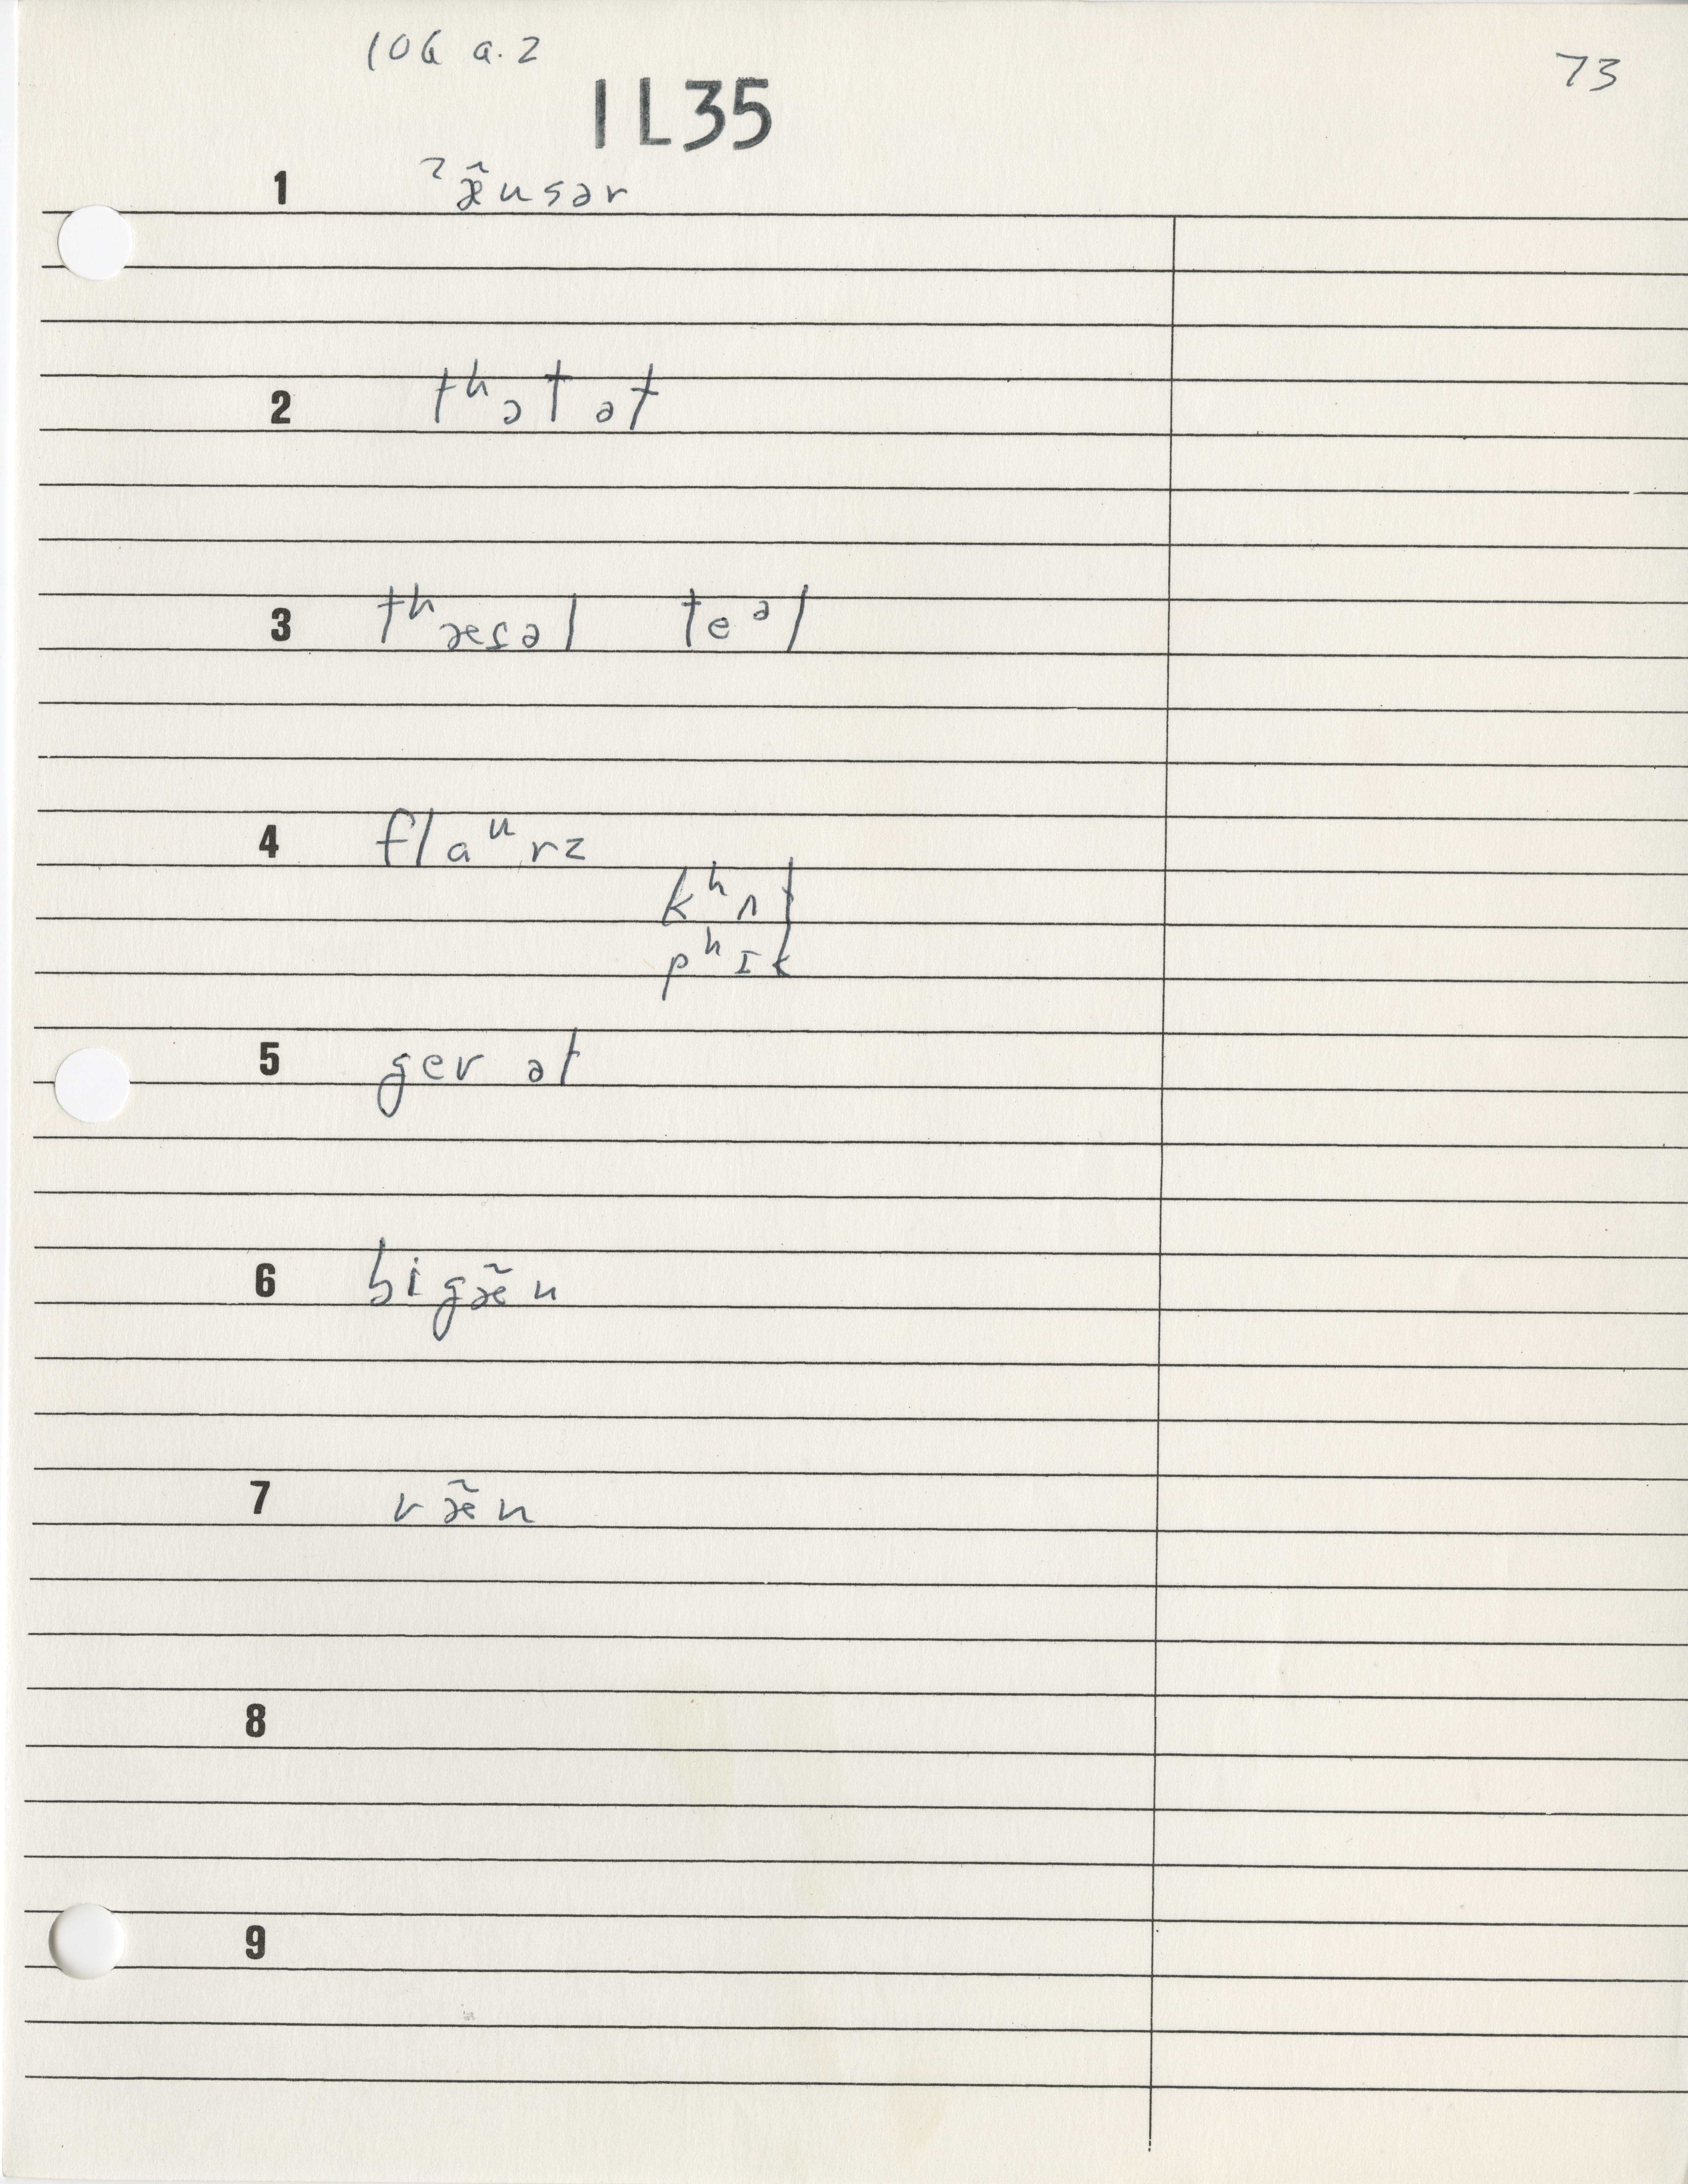 106 a.2
73
1L35
1 ˀæ̃nsər
2 tʰətət
3 tʰæsəl teᵊl
4 flaᵘrz
kʰʌt
pʰɪk
5 ger ət
6 bigæ̃n
7 ræ̃n
8
9